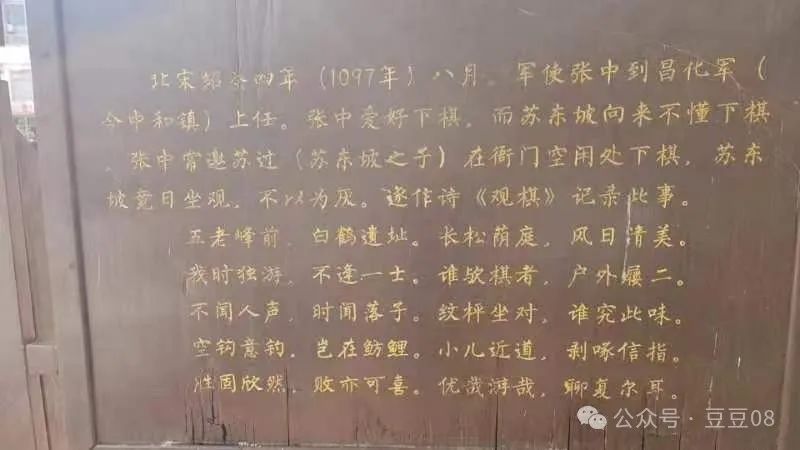 北宋绍圣四年（1097年）八月，军使张中到昌化军（
今中和镇）上任。张中爱好下棋，而苏东坡向来不懂下棋
，张中常邀苏过（苏东坡之子）在衙门空闲处下棋，苏东
坡竟日坐观，不以为厌。遂作诗《观棋》记录此事。
五老峰前，白鹤遗址。长松荫庭，风日清美。
我时独游，不逢一士。谁欤棋者，户外屦二。
不闻人声，时闻落子。纹枰坐对，谁究此味。
空钩意钓，岂在鲂鲤。小儿近道，剥啄信指。
胜固欣然，败亦可喜。优哉游哉，聊复尔耳。
公众号·豆豆08